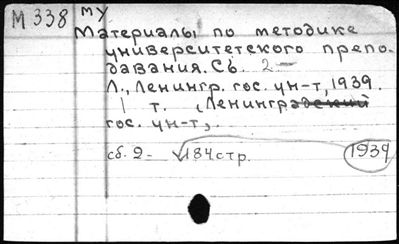 М 338 му
Материалы по методике
университетского препо-
давания. Сб. 2—
Л., Ленингр. гос. ун-т, 1939.
1 т. (Ленинградский
гос. ун-т,
сб. 2- √184стр. 1939